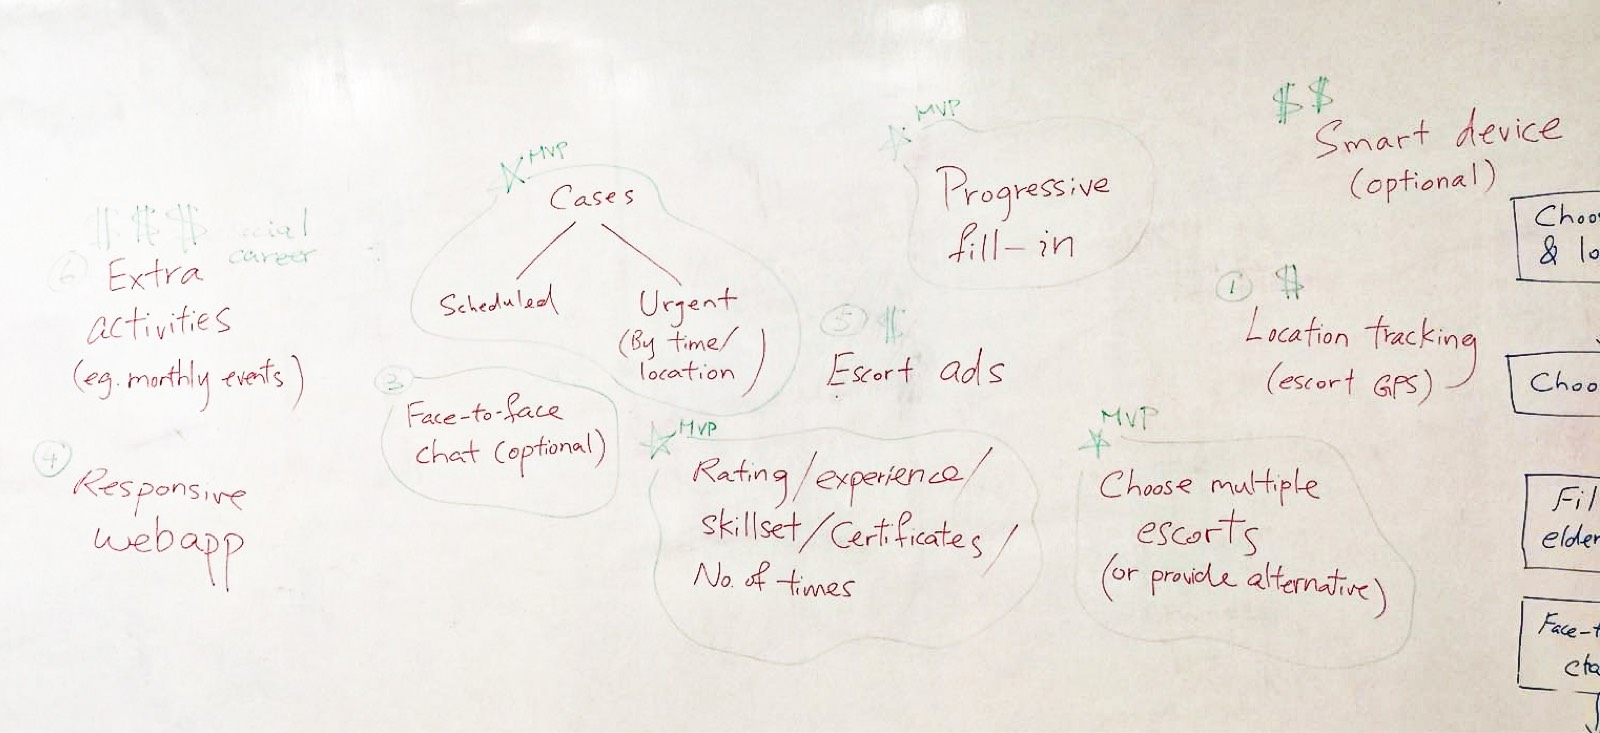 $$$
career
6
Extra
activities
(eg. monthly events)
4
Responsive
webapp
MVP
Cases
Scheduled
Urgent
(By time/
location)
3
Face-to-face
chat (optional)
MVP
Progressive
fill-in
5 $
Escort ads
MVP
Rating/experience/
skillset/Certificates/
No. of times
$$
Smart device
(optional)
1 $
Location tracking
(escort GPS)
MVP
Choose multiple
escorts
(or provide alternative)
Choo
& lo
Choo
Fil
elder
Face-t
cha